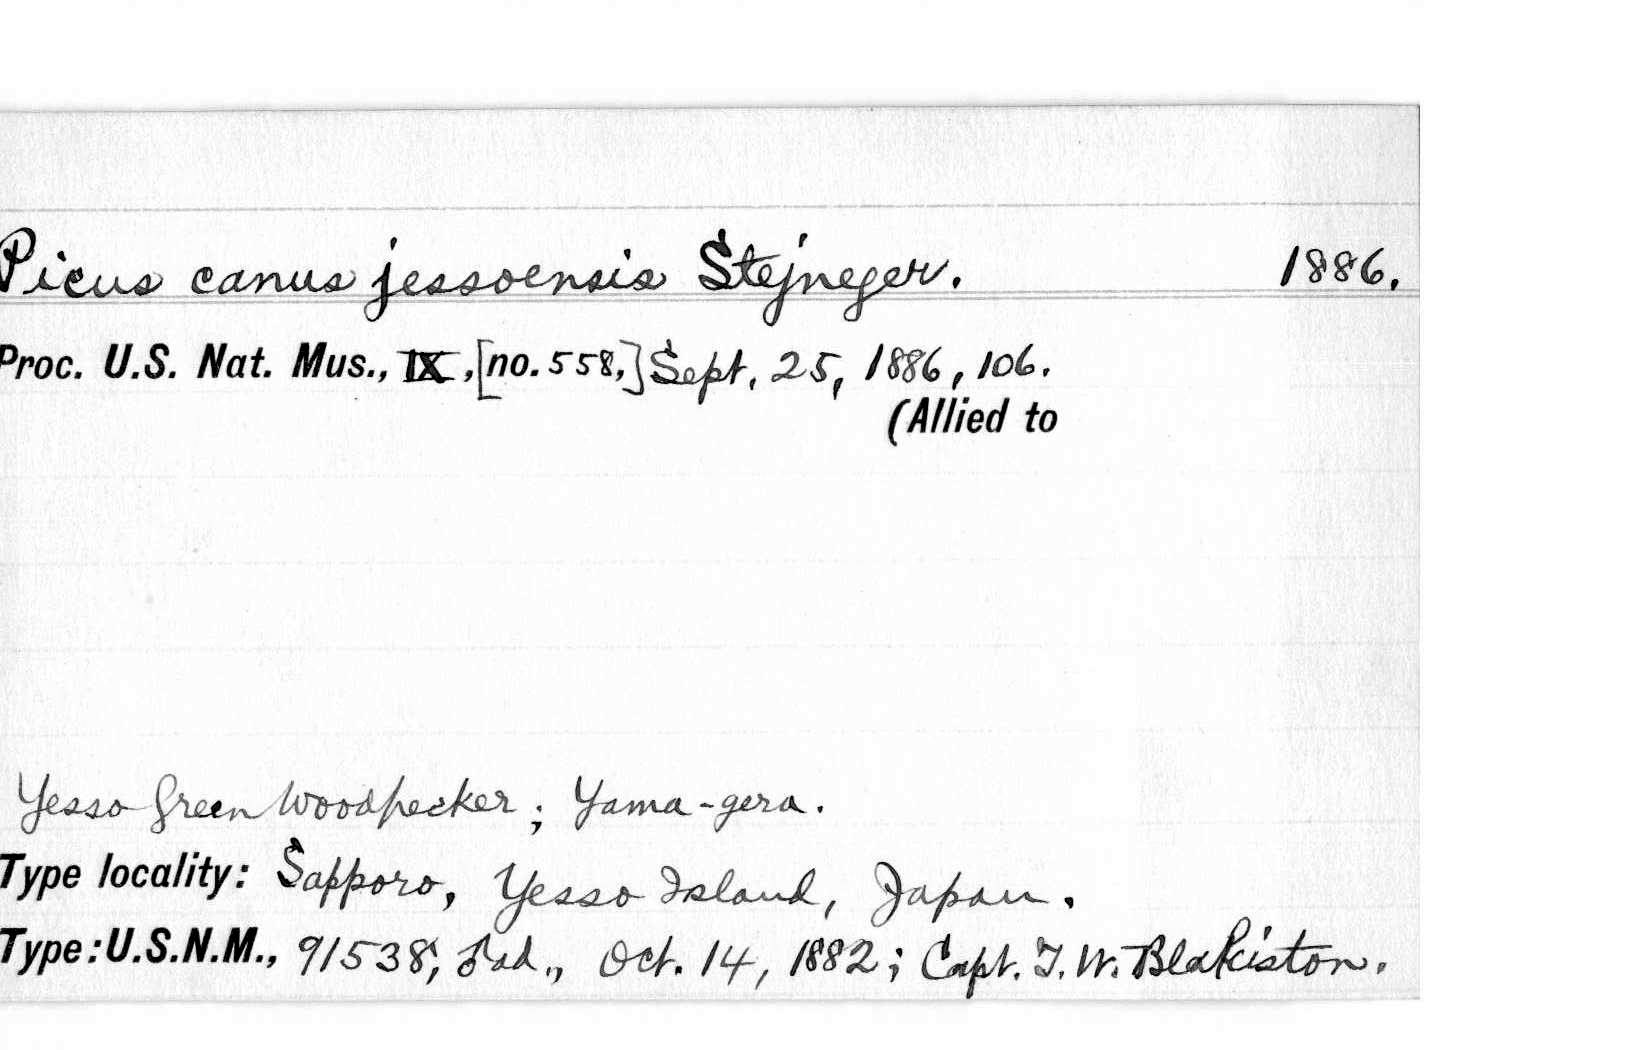 Picus canus jessoensis Stejneger. 1886.
Proc. U.S. Nat. Mus., IX, [no. 558,] Sept. 25, 1886, 106.
(Allied to
Yesso Green Woodpecker; Yama-gera.
Type locality: Sapporo, Yesso Island, Japan.
Type: U.S.N.M., 91538, ♂ ad., Oct. 14, 1882; Capt. T. W. Blakiston.